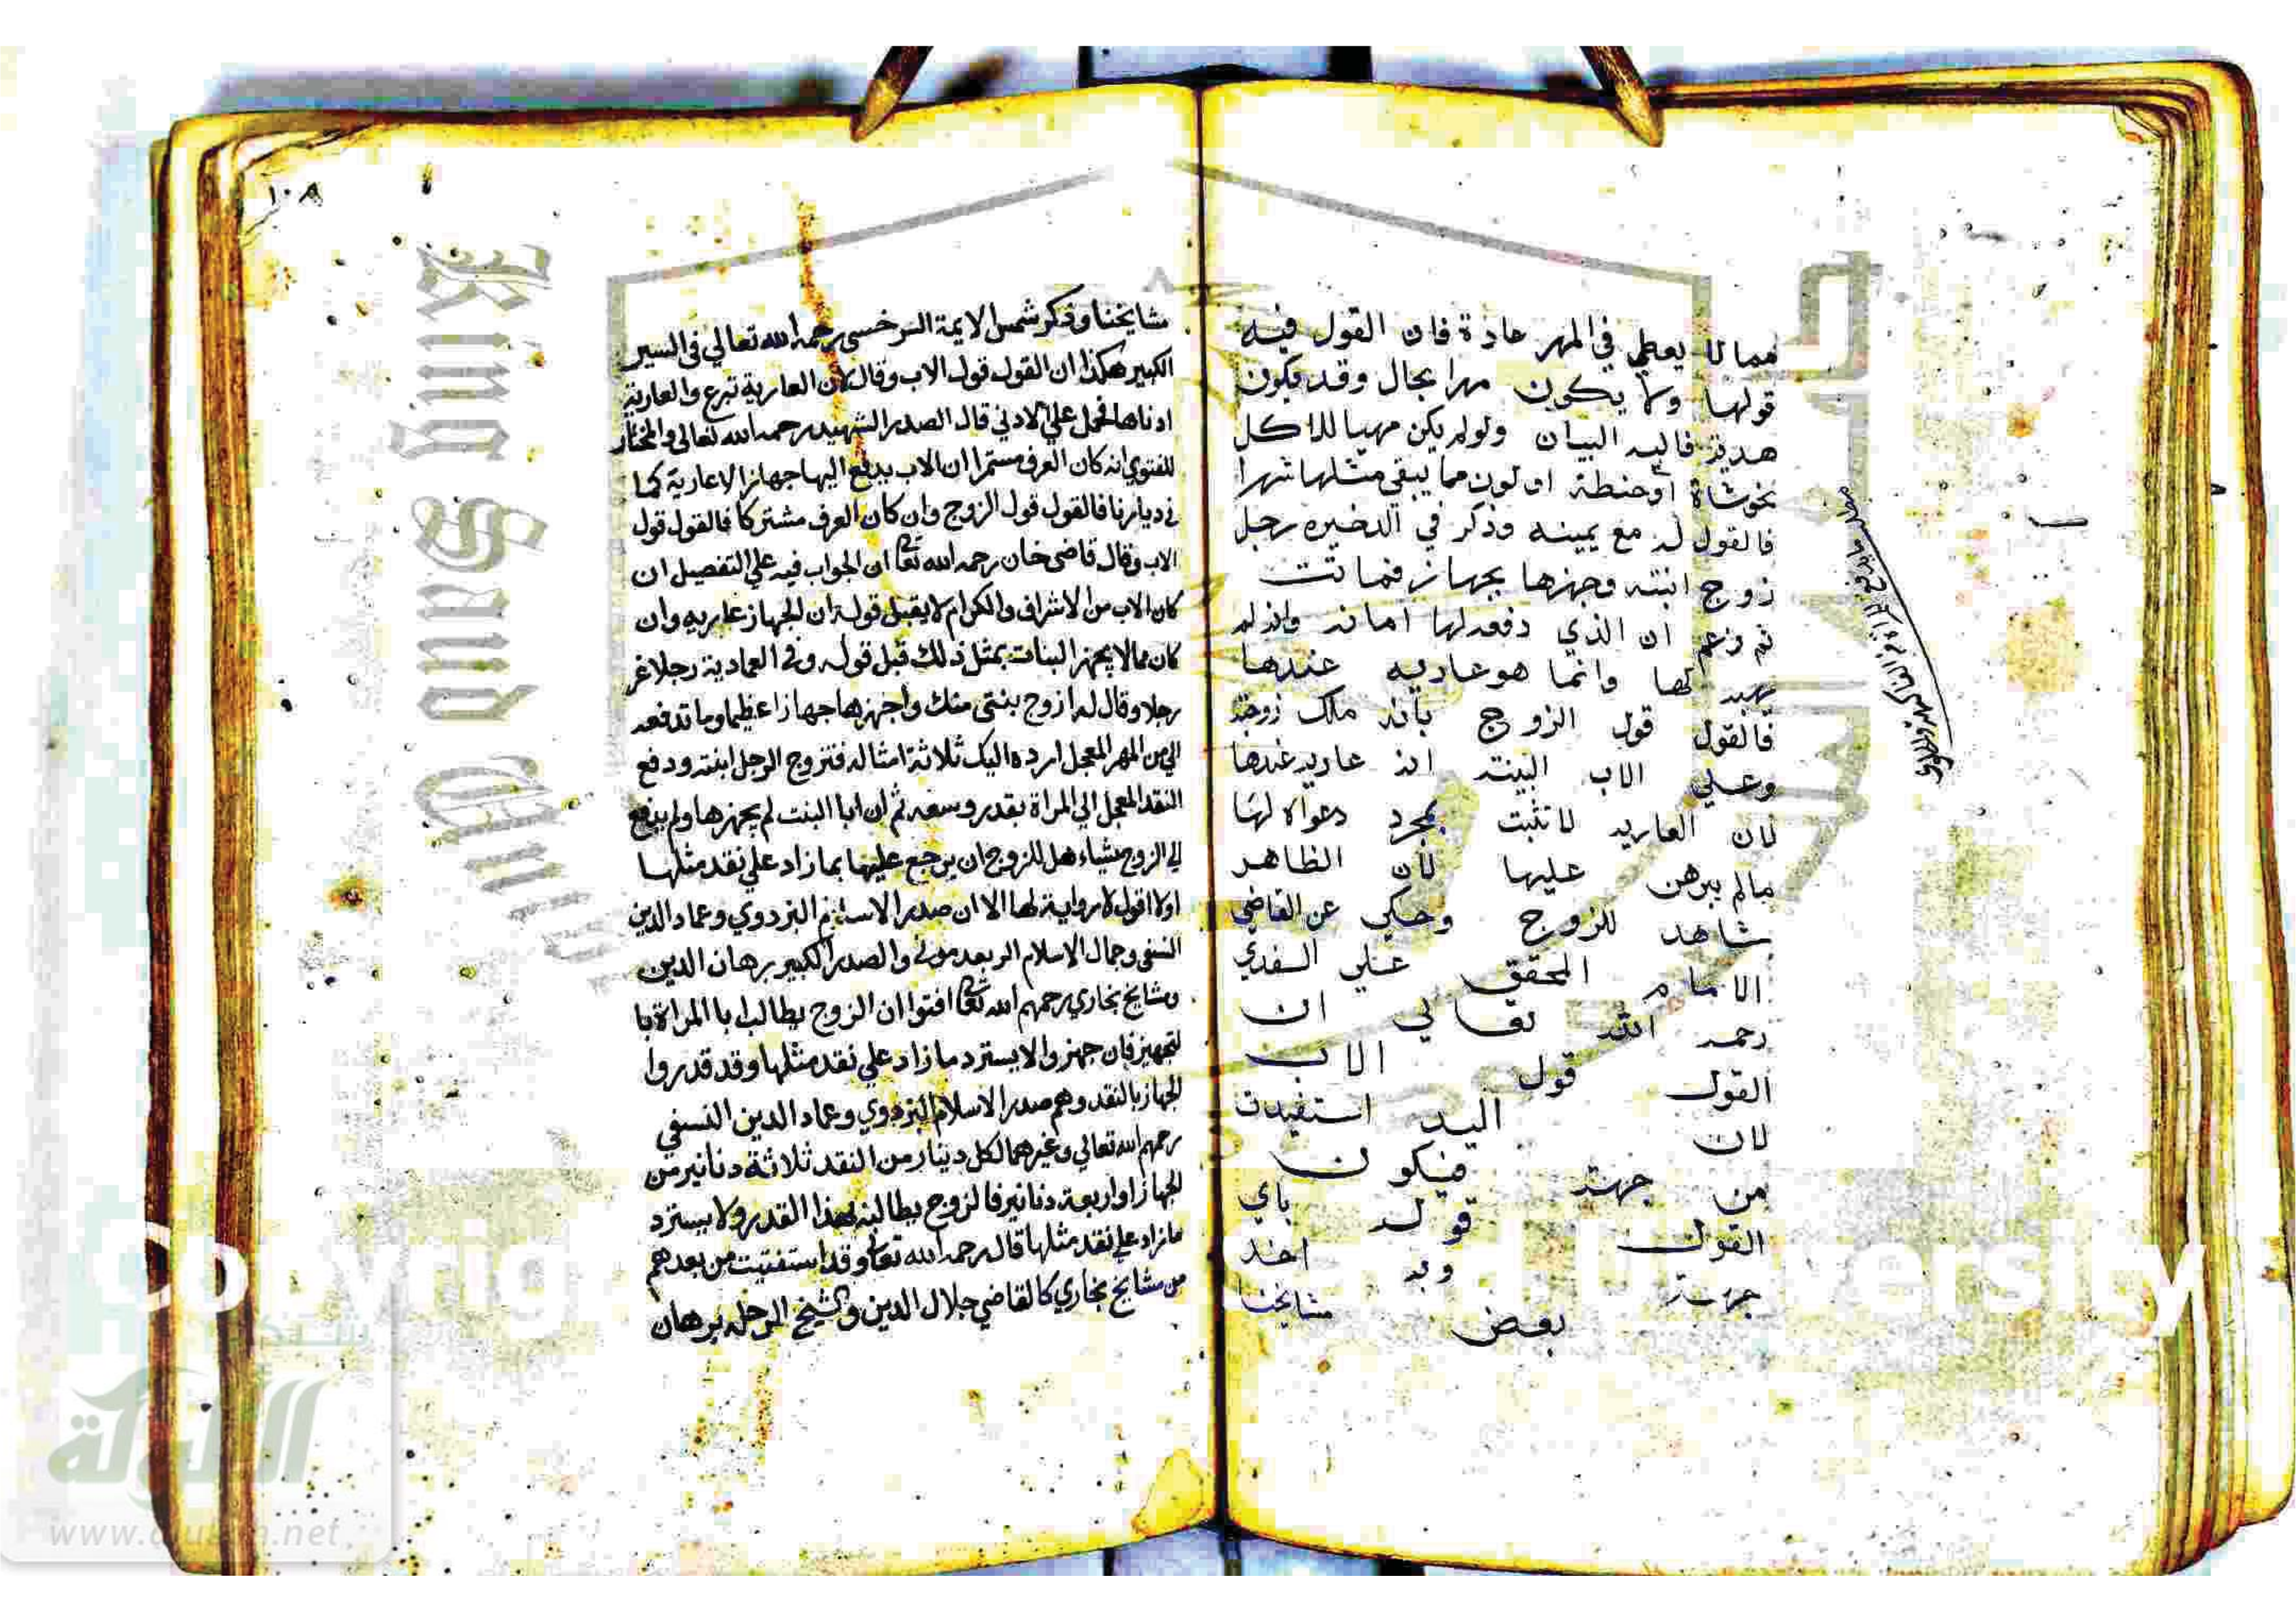 مما لا يعطي في المهر عادة فان القول فيه
قولها ولا يكون مهرا بحال وقد يكون
هدية فاليه البيان ولولم يكن مهيا للاكل
نحوشاة اوحنطة او لون مما يبقى مثلها شهرا
فالقول له مع يمينه وذكر في الذخيره رجل
زوج ابنته وجهزها بجهاز فماتت
ثم زعم ان الذي دفعه لها امانة وانه لم
يهبه لها وانما هو عاريه عندها
فالقول قول الزوج بانه ملك زوجته
وعلي الاب البينة انه عاريه عندها
لان العاريه لا تثبت بمجرد دعواه لها
مالم يبرهن عليها لان الظاهر
شاهد للزوج وحكي عن القاضي
الامام المحقق علي السغدي
رحمه الله تعالي ان
القول قول الاب
لان اليد استفيدت
من جهته فيكون
القول قوله باي
جهة وبه اخذ
بعض مشايخنا
١٠٨
مشايخنا وذكر شمس الايمة السرخسى رحمه الله تعالي في السير
الكبير هكذا ان القول قول الاب وقال لان العارية تبرع والعارية
ادناها فحمل علي الادني قال الصدر الشهيد رحمه الله تعالى والمختار
للفتوي انه كان العرف مستمرا ان الاب يدفع اليها جهازا لا عارية كما
في ديارنا فالقول قول الزوج وان كان العرف مشتركا فالقول قول
الاب وقال قاضى خان رحمه الله تعا ان الجواب فيه علي التفصيل ان
كان الاب من الاشراف والكرام لا يقبل قوله ان الجهاز عاريه وان
كان مما لا يجهز البنات بمثل ذلك قبل قوله وفي العمادية رجلا غر
رجلا وقال له ازوج بنتي منك واجهزها جهازا عظيما وما تدفعه
الي من المهر المعجل ارده اليك ثلاثة امثاله فتزوج الرجل ابنته ودفع
النقد المعجل الي المراة بقدر وسعه ثم ان ابا البنت لم يجهزها ولم يدفع
الي الزوج شياء هل للزوج ان يرجع عليها بما زاد علي نقد مثلها
اولا اقول لا رواية لها الا ان صدر الاسلام البزدوي وعماد الدين
النسفى وجمال الاسلام والصدر الكبير برهان الدين
ومشايخ بخاري رحمهم الله تعا افتوا ان الزوج يطالب ابا المراة با
لتجهيز فان جهز والا يسترد ما زاد علي نقد مثلها وقد قدروا
الجهاز بالنقد وهم صدر الاسلام البزدوي وعماد الدين النسفي
رحمهم الله تعالي وغيرهما لكل دينار من النقد ثلاثة دنانير من
الجهاز او اربعة دنانير فالزوج يطالبه بهذا القدر ولا يسترد
ما زاد علي نقد مثلها قال رحمه الله تعا وقد استفتيت من بعدهم
من مشايخ بخاري كالقاضي جلال الدين والشيخ برهان
King Saud
www.alukah.net